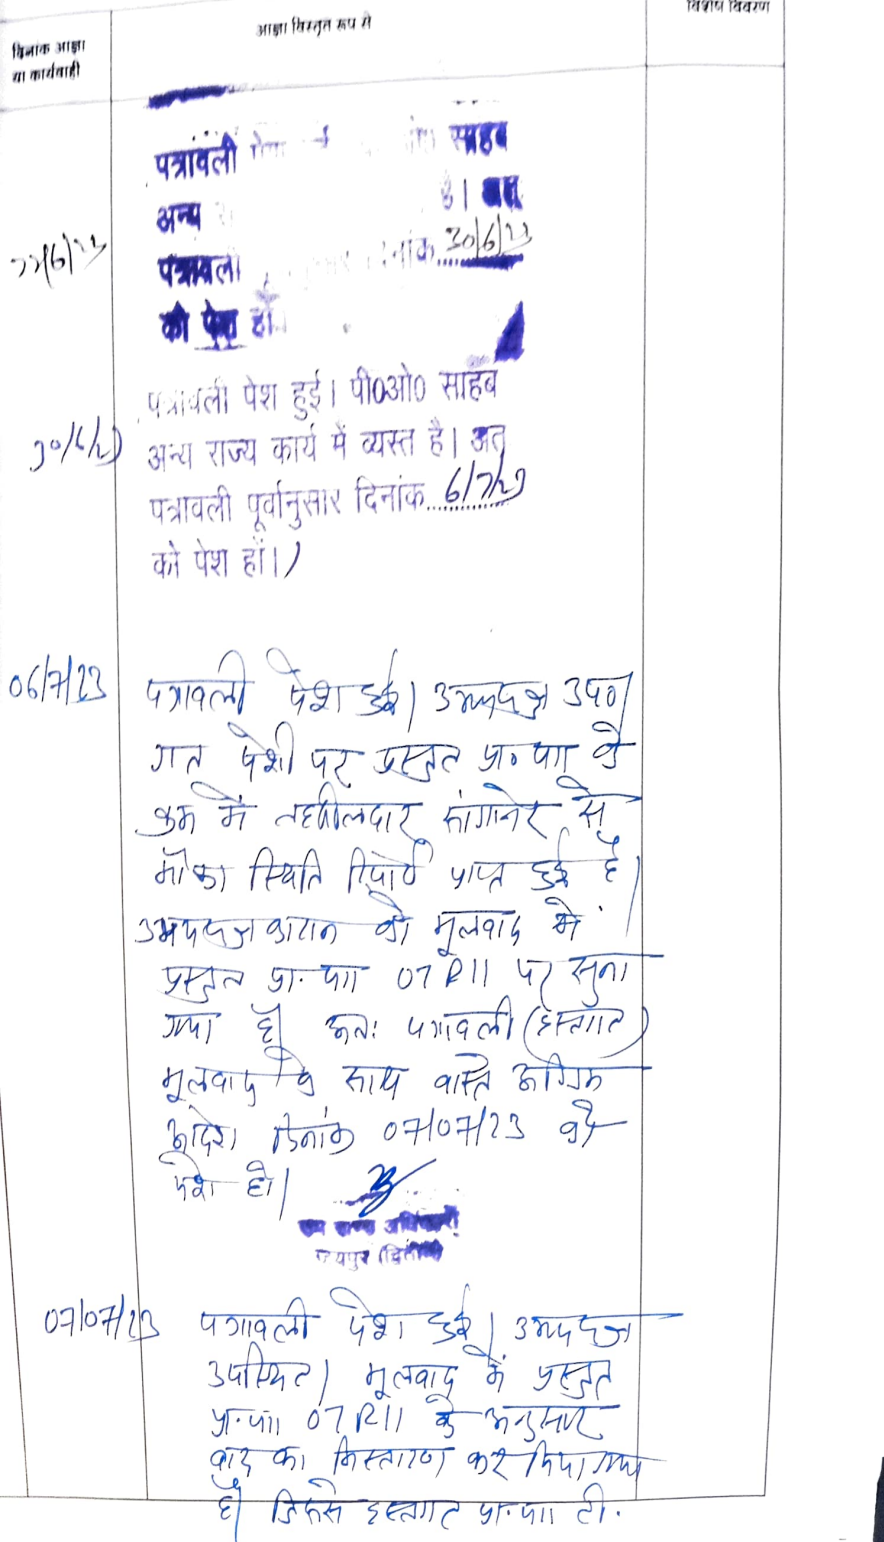 दिनांक आज्ञा
या कार्यवाही
आज्ञा विस्तृत रूप से
विशेष विवरण
पत्रांवली साहब
अन्य है। अत
22/6/23
पत्रावली दिनांक 30/6/23
को पेश हो।
पत्रावली पेश हुई। पी0ओ0 साहब
30/6/23
अन्य राज्य कार्य में व्यस्त है। अत
पत्रावली पूर्वानुसार दिनांक 6/7/23
को पेश हों।
06/7/23
पत्रावली पेश हुई। उभयपक्ष उप०
गत पेशी पर प्रस्तुत प्रा० पत्र के
क्रम में तहसीलदार सांगानेर से
मौका स्थिति रिपोर्ट प्राप्त हुई है।
उभयपक्षकारान को मूलवाद में
प्रस्तुत प्रा. पत्र 07 R11 पर सुना
गया है। अतः पत्रावली (हस्तगत)
मूलवाद के साथ वास्ते अग्रिम
आदेश दिनांक 07/07/23 को
पेश हो।
उप खण्ड अधिकारी
जयपुर (द्वितीय)
07/07/23
पत्रावली पेश हुई। उभयपक्ष
उपस्थित। मूलवाद में प्रस्तुत
प्रा. पत्र 07 R11 के अनुसार
वाद का निस्तारण कर दिया गया
है। जिससे हस्तगत प्रा. पत्र टी.